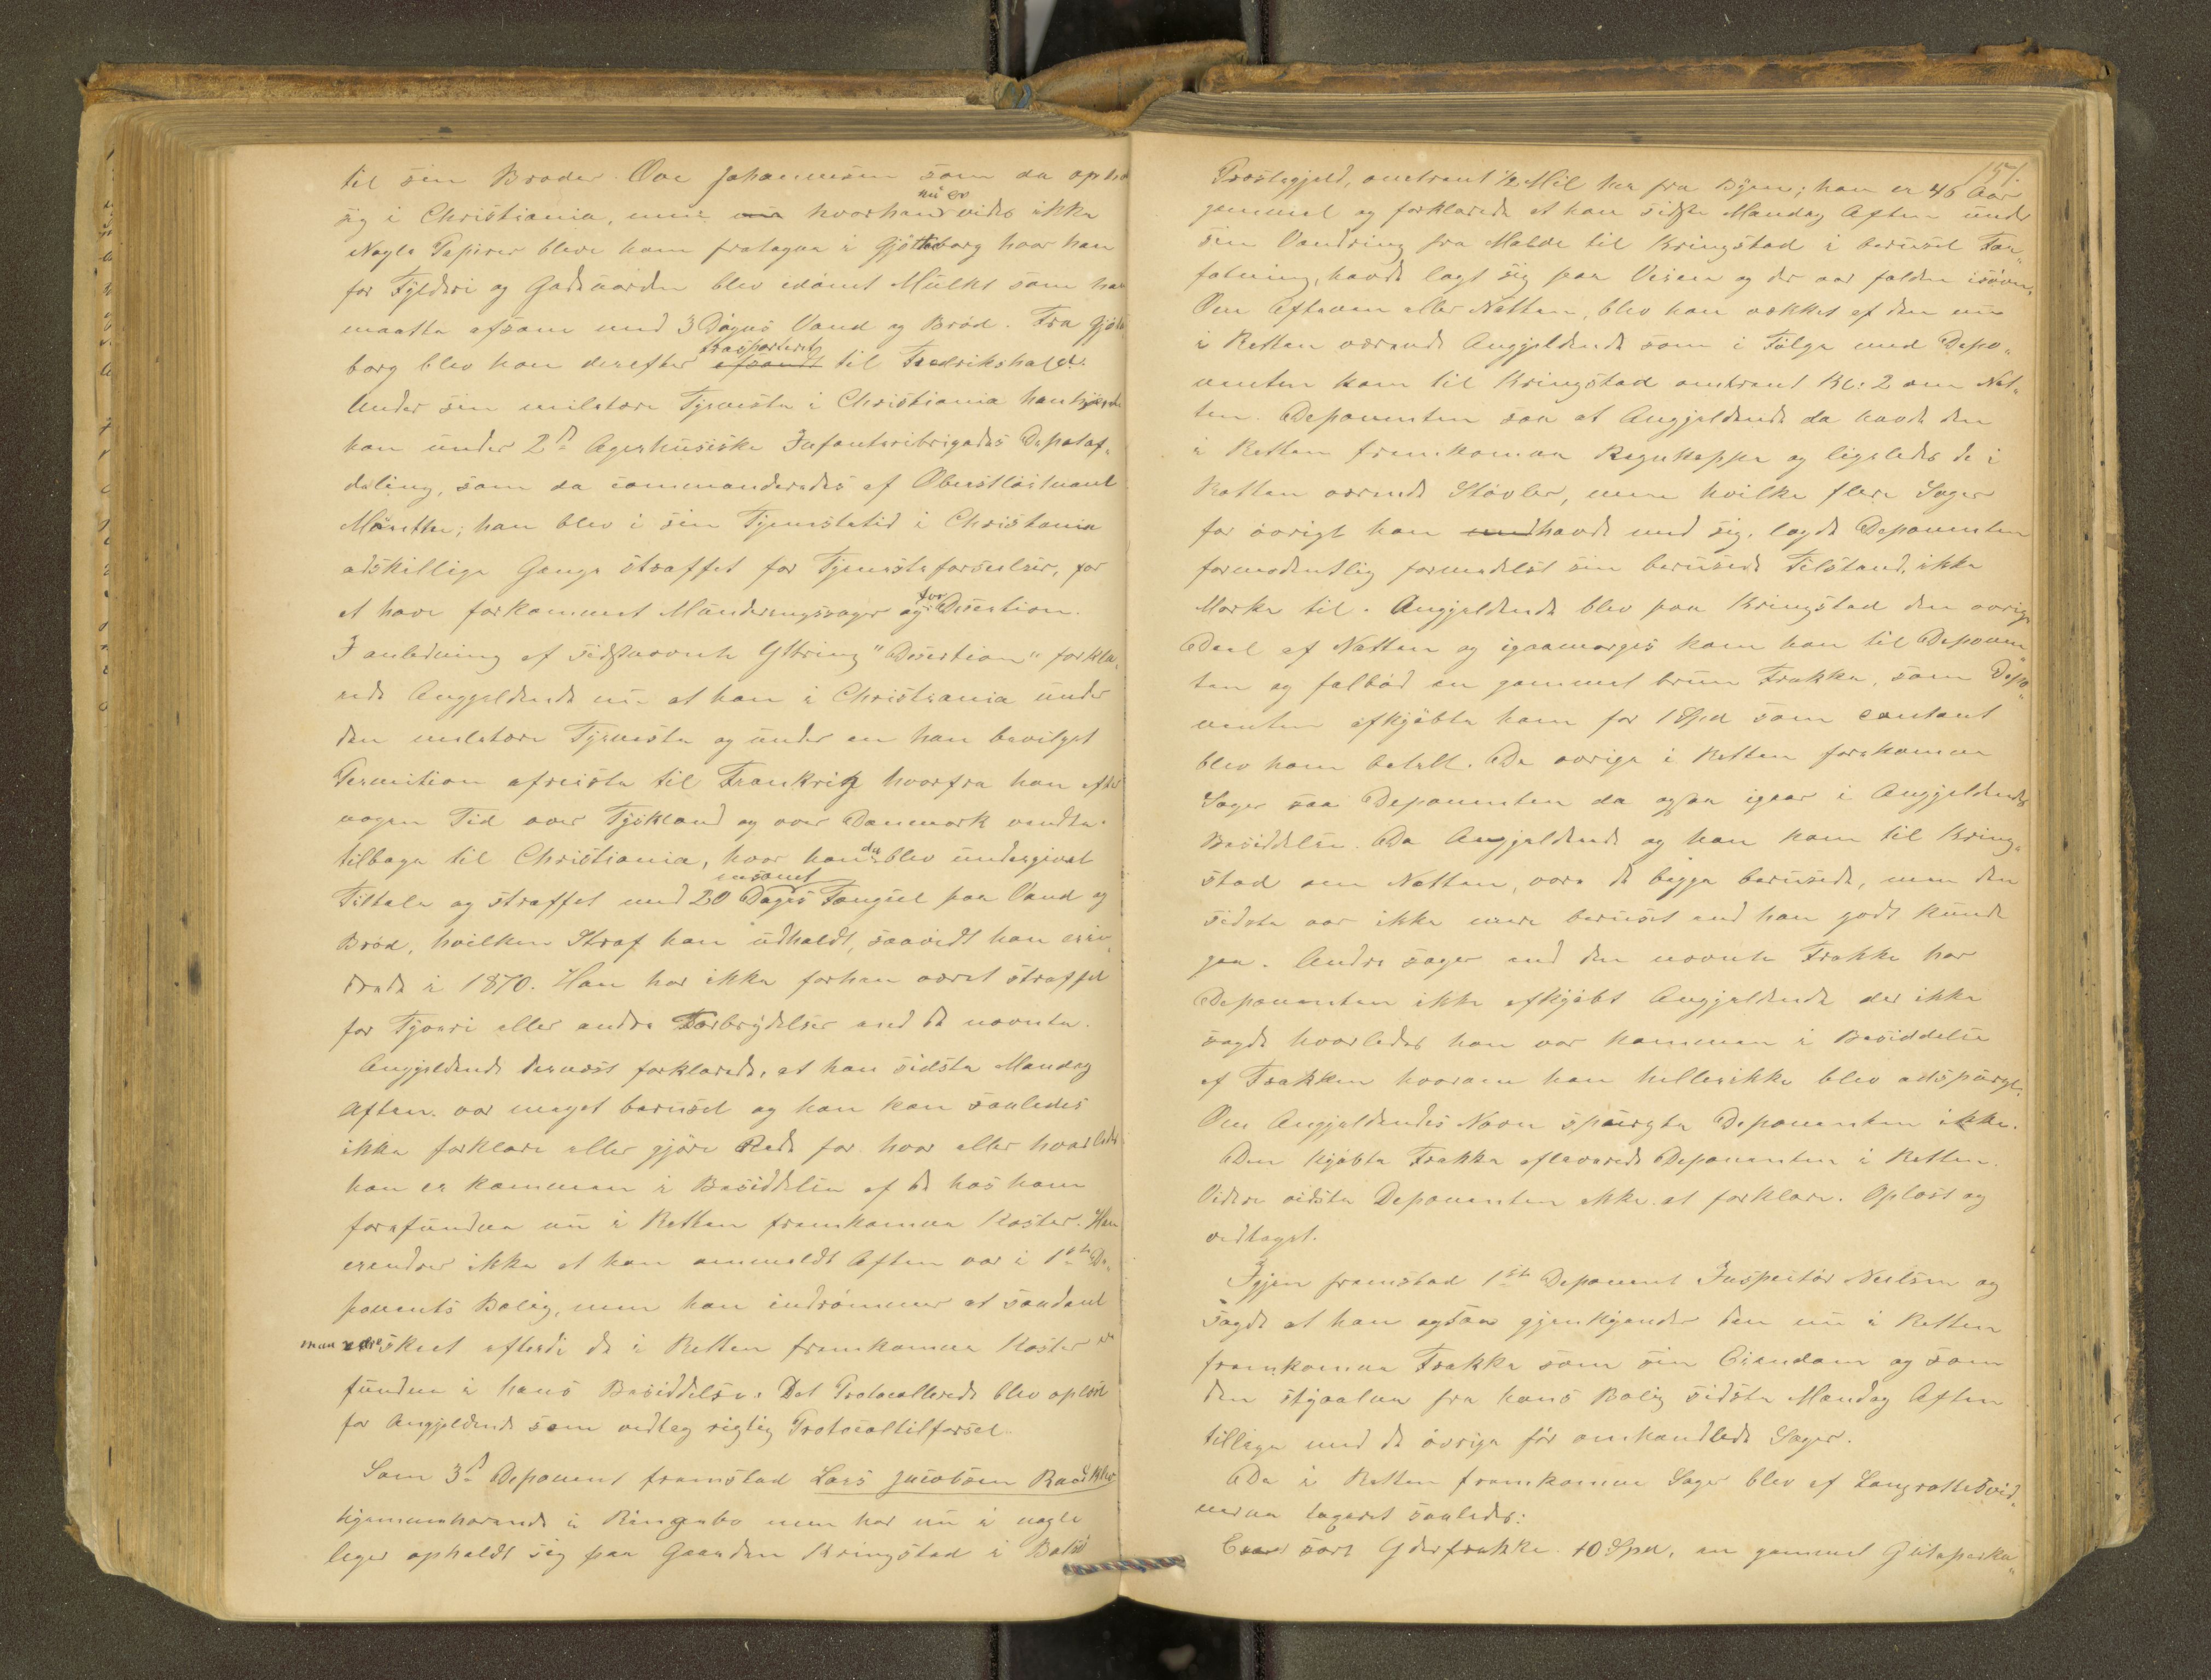 til sin Broder Ove Johannesen som da ophol
sig i Christiania, men hvorhan nu er vides ikke
Nogle Papirer bleve ham fratagne i Gjøtteborg hvor han
for Fylderi og Gadeuorden blev idømt Mulkt som han
maatte afsone med 3 Dages Vand og Brød. Fra Gjøtte
borg blev han derefter transporteret til Fredrikshald.
Under sin militære Tjeneste i Christiania henhørte
han under 2den Agershusiske Infanteribrigades Depotaf-
deling, som da commanderedes af Oberstløitnant
Münthe; han blev i sin Tjenestetid i Christiania
adskillige Gange straffet for Tjenesteforseelser, for
at have forkommet Munderingssager og for Desertion.
I anledning af sidstnævnte Yttring "Desertion" forkla-
rede Angjeldende nu at han i Christiania under
den militære Tjeneste og under en ham bevilget
Permition afreiste til Frankrig hvorfra han efter
nogen Tid over Tyskland og over Danmark vendte
tilbage til Christiania, hvor han da blev undergivet
Tiltale og straffet med 20 Dages ensomt Fængsel paa Vand og
Brød, hvilken Straf han udholdt, saavidt han erin-
drede i 1870. Han har ikke forhen været straffet
for Tyveri eller andre Forbrydelser end de nævnte.
Angjeldende dernæst forklarede, at han sidste Mandag
Aften var meget beruset og han kan saaledes
ikke forklare eller gjøre Rede for hvor eller hvorledes
han er kommen i Besiddelse af de hos ham
forefundne nu i Retten fremkomne Koster. Han
erindrer ikke at han ommeldte Aften var i 1ste De-
ponents Bolig, men han indrømmer at saadant
maa være skeet efterdi de i Retten fremkomne Koster er
fundne i hans Besiddelse. Det Protocollerede blev oplæst
for Angjeldende som vedtog rigtig Protocoltilførsel.
Som 3die Deponent fremstod Lars Jacobsen
hjemmehørende i Ringebo men har nu i nogle
Uger opholdt sig paa Gaarden Kringstad i Bolsø
157.
Præstegjeld, omtrent ½ Mil her fra Byen; han er 46 Aar
gammel og forklarede at han sidste Mandag Aften under
sin Vandring fra Molde til Kringstad i beruset For-
fatning, havde lagt sig paa Veien og der var falden isøvn.
Om Aftenen eller Natten, blev han vækket af den nu
i Retten værende Angjeldende som i Følge med Depo-
nenten kom til Kringstad omtrent Kl: 2 om Nat-
ten. Deponenten saa at Angjeldende da havde den
i Retten fremkomne Regnkappe og ligeledes de i
Retten værende Støvler, men hvilke flere Sager
for øvrigt han havde med sig, lagde Deponenten
formodentlig formedelst sin berusede Tilstand, ikke
Mærke til. Angjeldende blev paa Kringstad den øvrige
Deel af Natten og igaarmorges kom han til Deponen-
ten og falbød en gammel brun Frakke, som Depo-
nenten afkjøbte ham for 1 Spd som contant
blev ham betalt. De øvrige i Retten forekomne
Sager saa Deponenten da ogsaa igaar i Angjeldendes
Besiddelse. Da Angjeldende og han kom til Kring-
stad om Natten, vare de begge berusede, men den
sidste var ikke mere beruset end han godt kunde
gaa. Andre sager end den nævnte Frakke har
Deponenten ikke afkjøbt Angjeldende der ikke
sagde hvorledes han var kommen i Besiddelse
af Frakken hvorom han hellerikke blev adspurgt.
Om Angjeldendes Navn spurgte Deponenten ikke.
Den kjøbte Frakke afleverede Deponenten i Retten.
Videre vidste Deponenten ikke at forklare. Oplæst og
vedtaget.
Igjen fremstod 1ste Deponent Inspektør Neilsen og
sagde at han ogsaa gjenkjender den nu i Retten
fremkomne Frakke som sin Eiendom og som
den stjaalne fra hans Bolig sidste Mandag Aften
tillige med de øvrige før omhandlede Sager.
De i Retten fremkomne Sager blev af Laugrettesvid-
nerne taxeret saaledes:
sort Yderfrakke 10 Spd, en gammel